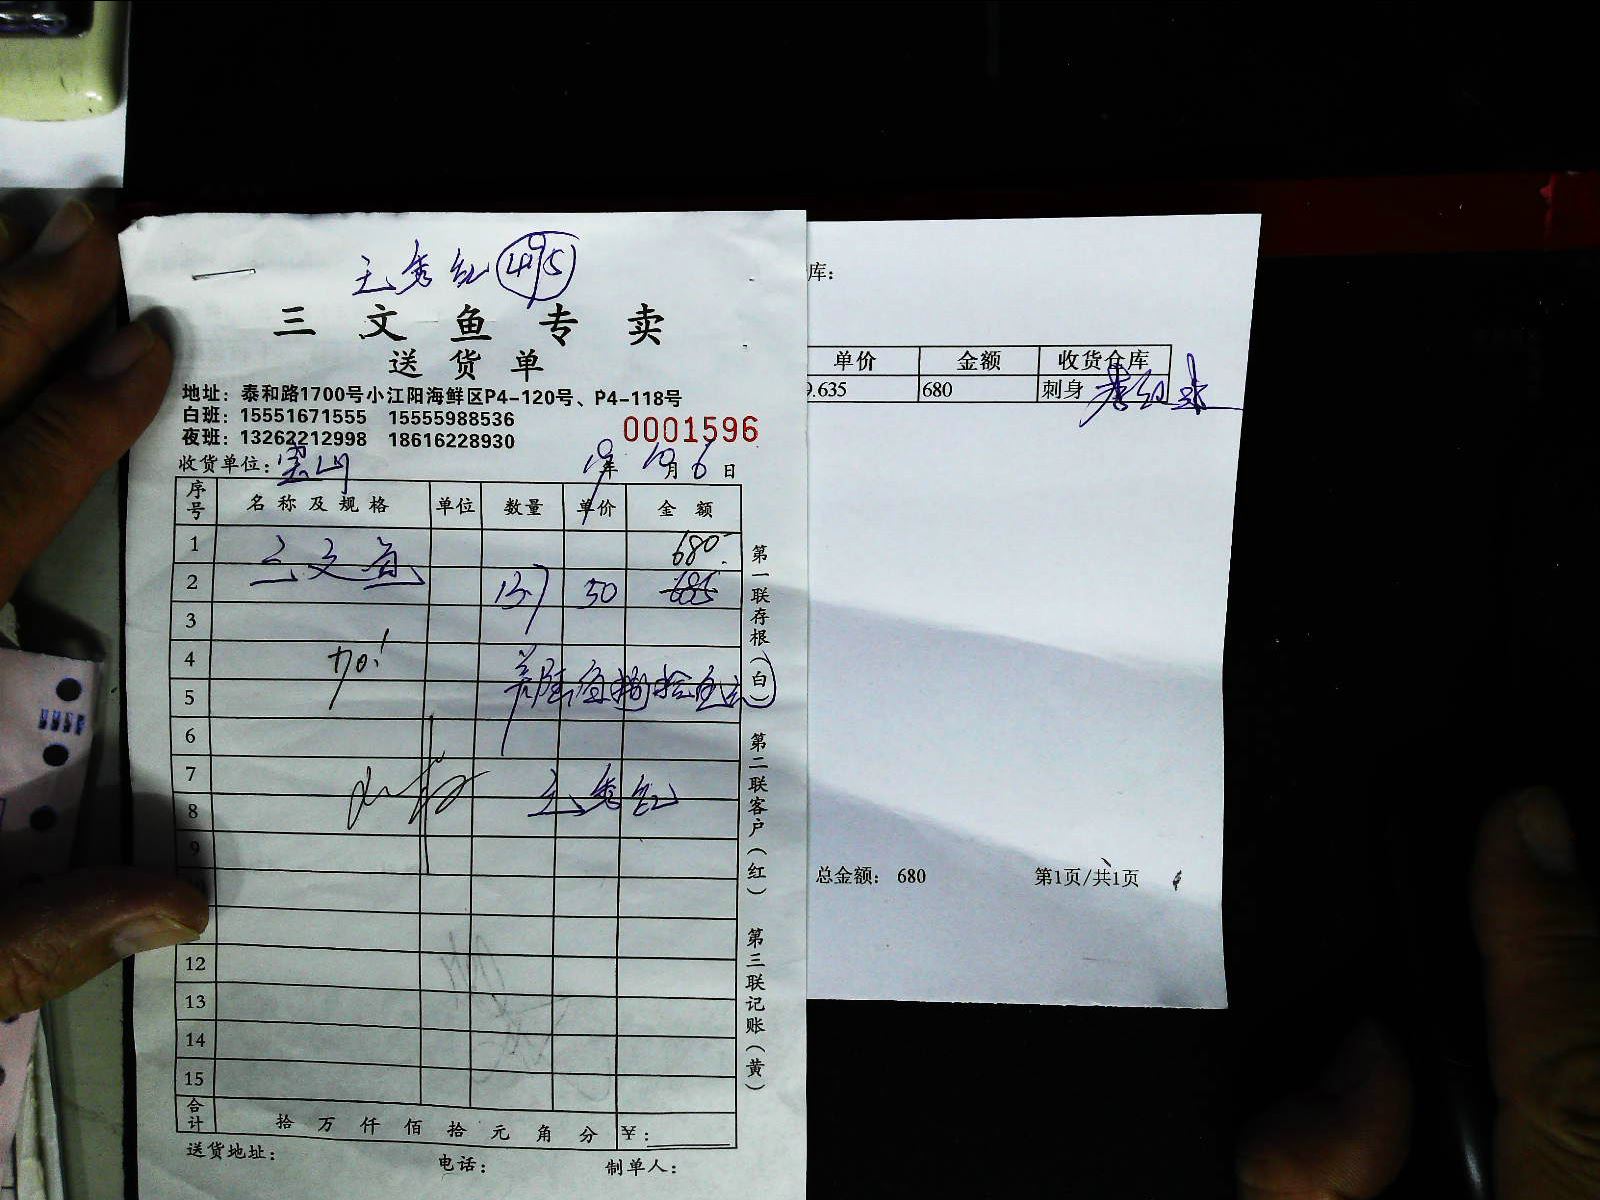 王秀红 495
三文鱼专卖
送货单
地址：泰和路1700号小江阳海鲜区P4-120号、P4-118号
白班：15551671555 15555988536
夜班：13262212998 18616228930
0001596
收货单位：
19年10月6日
序号 名称及规格 单位 数量 单价 金额
1 三文鱼 680-
2 13.7 50 685
3
4
5
6
7 王秀红
8
9
12
13
14
15
合计 拾万仟佰拾元角分 ￥：
送货地址： 电话： 制单人：
第一联存根（白）
第二联客户（红）
第三联记账（黄）
库：
单价 金额 收货仓库
9.635 680 刺身
总金额： 680 第1页/共1页